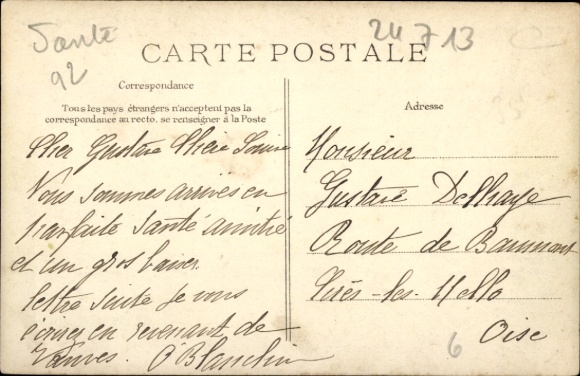 Santé
92
24 7 13
CARTE POSTALE
Correspondance
Tous les pays étrangers n'acceptent pas la
correspondance au recto. se renseigner à la Poste
Adresse
Cher Gustave Chère
Nous sommes arrivés en
Parfaite Santé amitié
et un gros baiser.
lettre suite je vous
en revenant de
Monsieur
Gustave Delhaye
Route de
Cirès-les-Mello
Oise
6